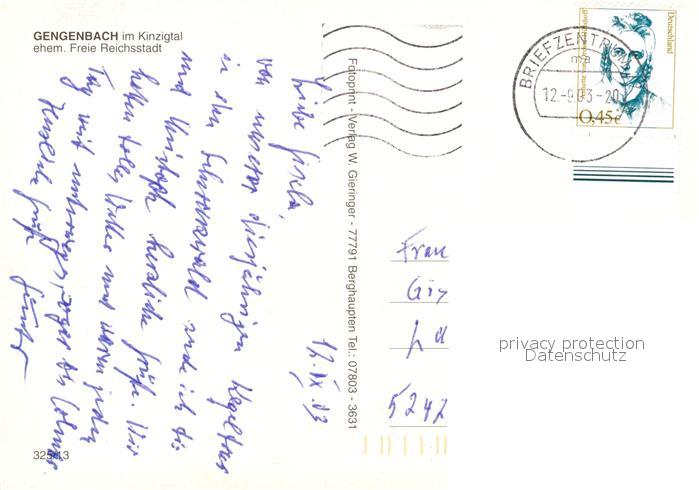 GENGENBACH im Kinzigtal
ehem. Freie Reichsstadt
12.IX.03
Liebe Gisela,
von unserem diesjährigen
in den Schwarzwald sende ich dir
und Christoph herzliche Grüße. Wir
hatten tolles Wetter und waren jeden
Tag viel unterwegs, sogar bis Colmar
Herzliche Grüße
Günter
325/13
Fotoprint - Verlag W. Gieringer - 77791 Berghaupten Tel.: 07803 - 3631
BRIEFZENTRUM
ma
12.-9.03-20
Deutschland
0,45€
Frau
5242
privacy protection
Datenschutz